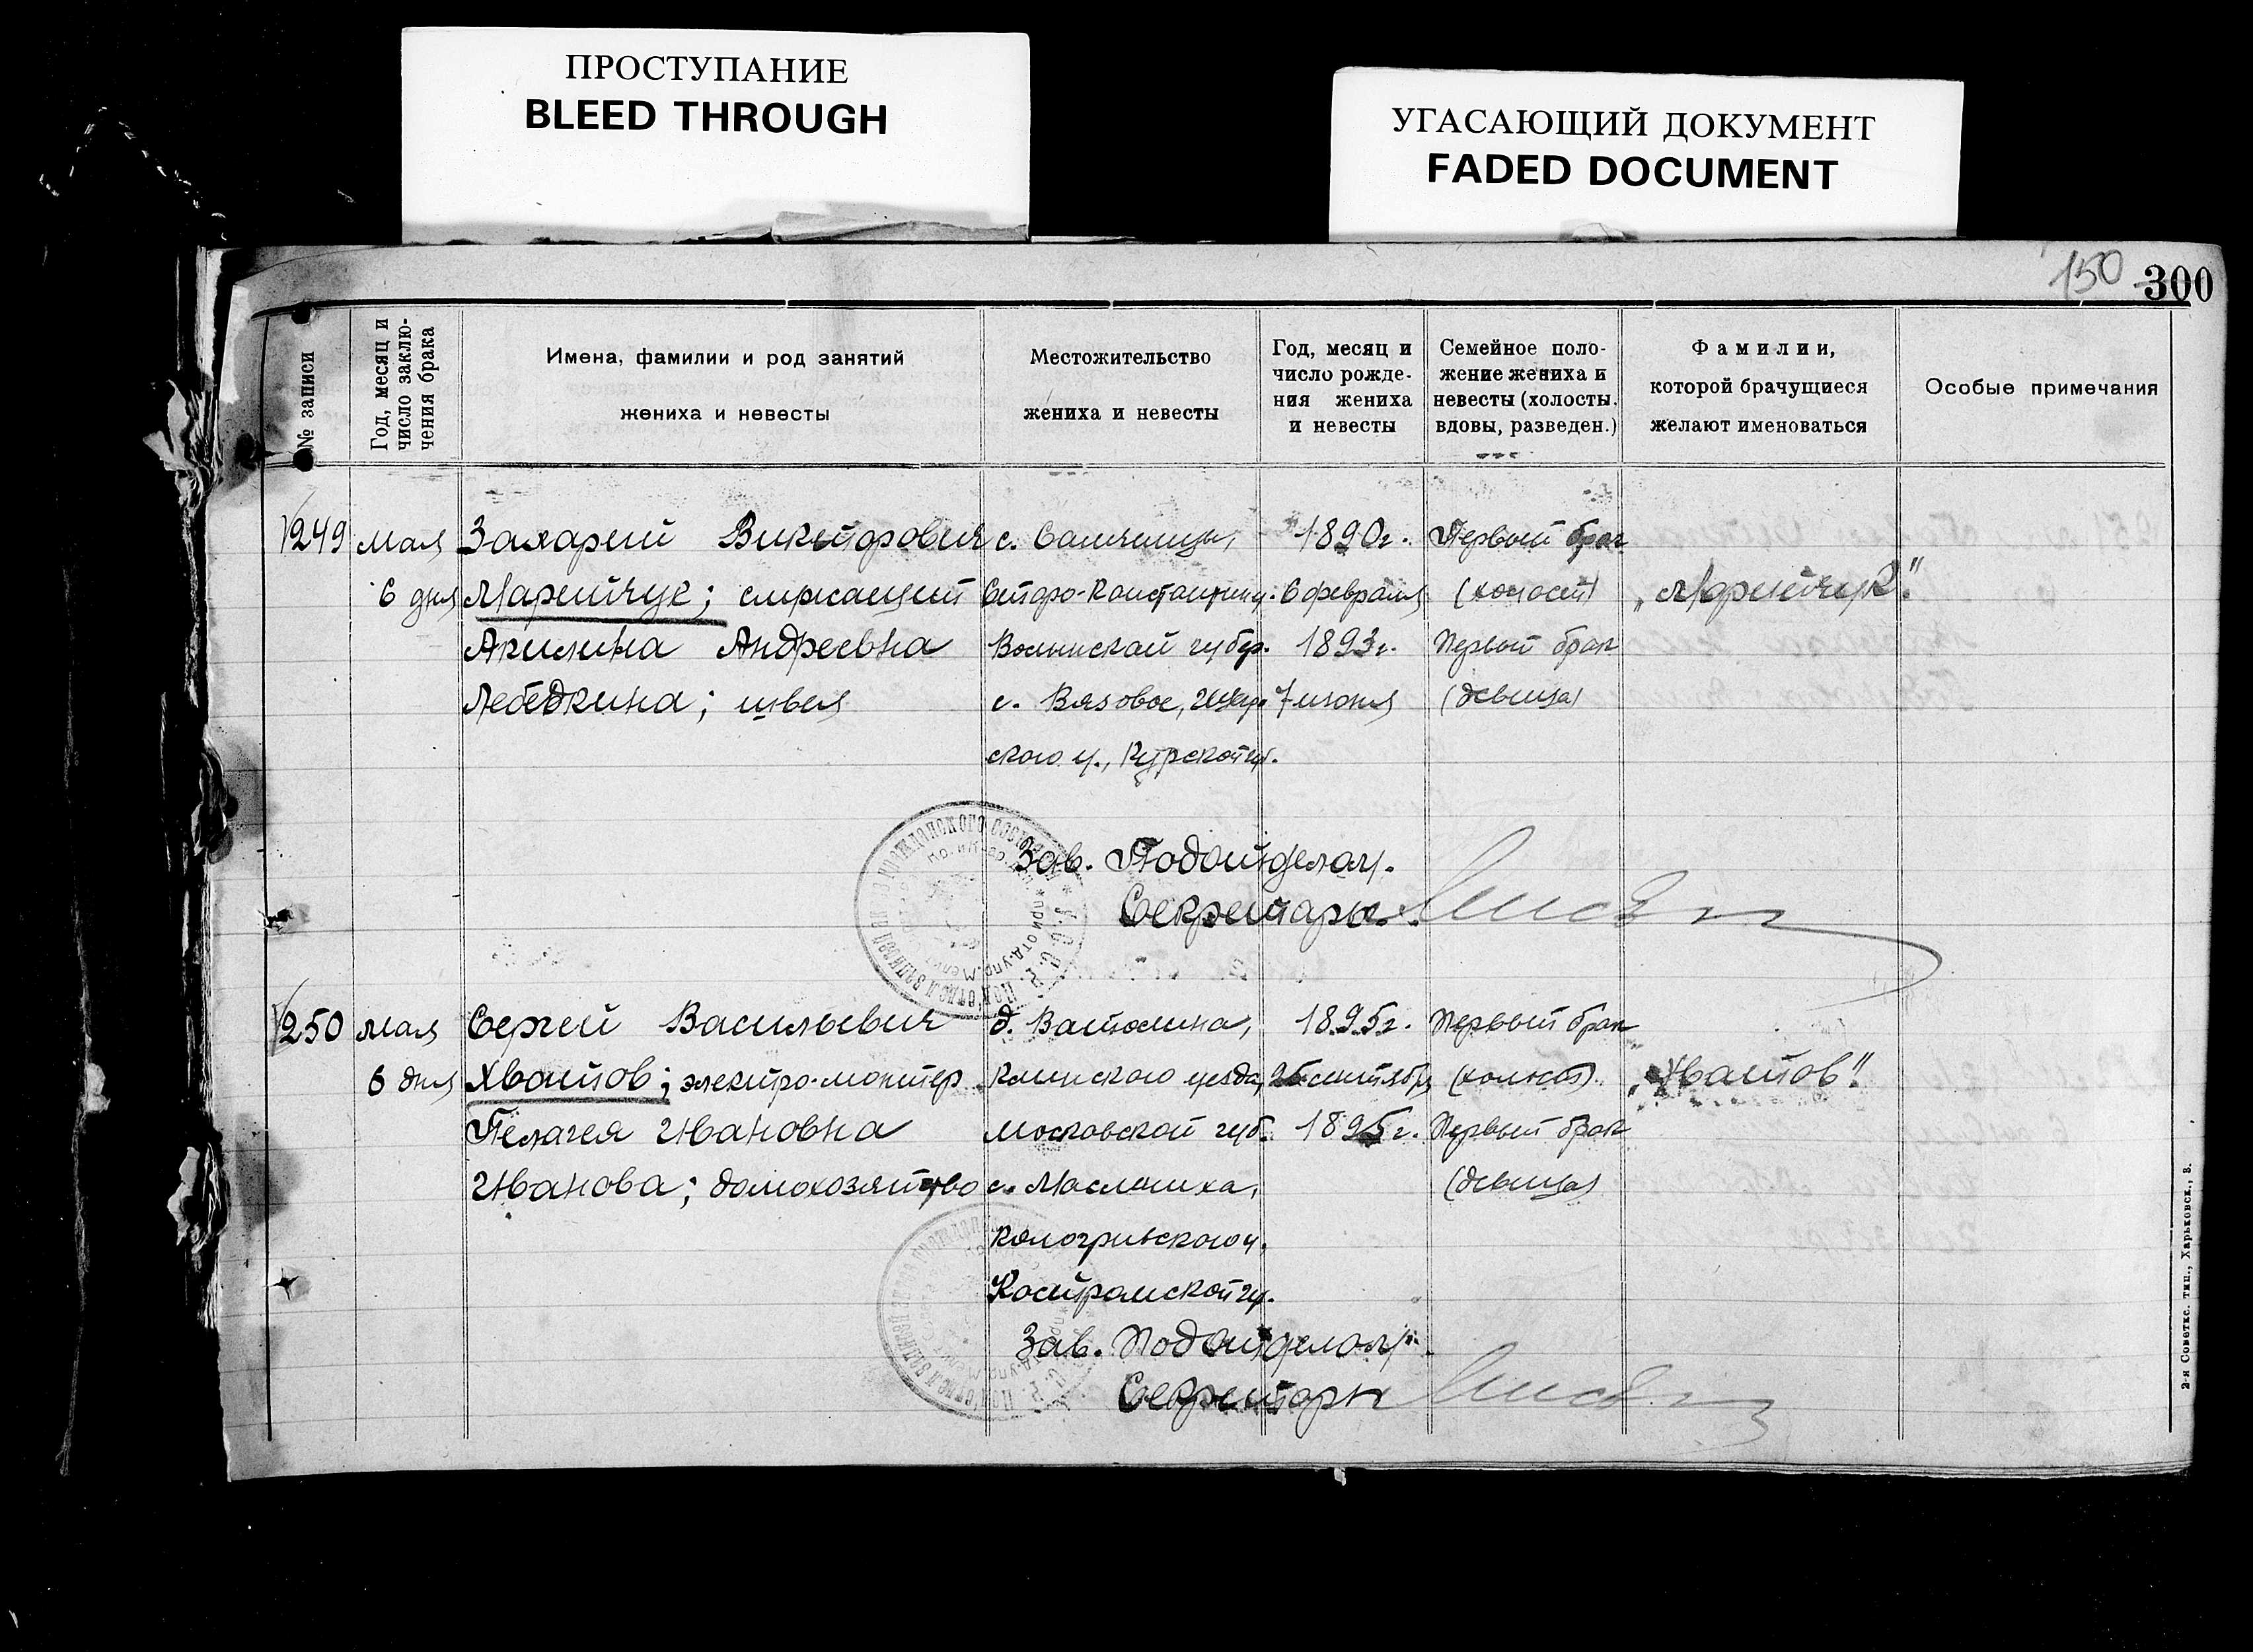 ПРОСТУПАНИЕ
BLEED THROUGH
УГАСАЮЩИЙ ДОКУМЕНТ
FADED DOCUMENT
150 300
№ записи
Год, месяц и
число заклю-
чения брака
Имена, фамилии и род занятий
жениха и невесты
Местожительство
жениха и невесты
Год, месяц и
число рожде-
ния жениха
и невесты
Семейное поло-
жение жениха и
невесты (холосты.
вдовы, разведен.)
Фамилии,
которой брачущиеся
желают именоваться
Особые примечания
249 мая Захарий Викторович с. 1890г. Первый брак
6 дня Марийчук; служащий Старо-Константин. 6 февраля (холост) „Марийчук".
Акилина Андреевна Волынской губер. 1893г. Первый брак
Лебедкина; швея с. Вязовое, 7 июня (девица)
ского у., Курской гу.
Зав. Подотделом.
Секретарь
250 мая Сергей Васильевич д. Ватолина, 1895г. Первый брак
6 дня Хватов; электро-монтер Клинского уезда, 25 сентября (холост). „Хватов".
Пелагея Ивановна Московской губ. 1895г. Первый брак
Иванова; домохозяйство с. Маслениха, (девица)
Кологривского у.
Костромской гу.
Зав. Подотделом
Секретарь
2-я Советск. тип., Харьковск., 3.